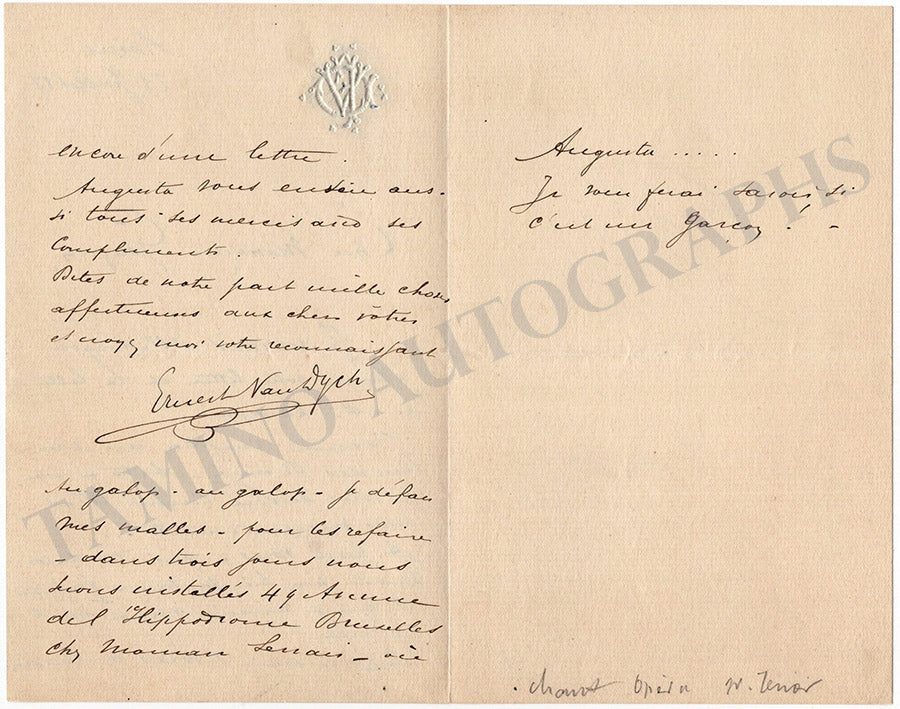 encore d'une lettre.
Augusta vous envoie aus-
si tous ses mercis avec ses
Compliments.
Dites de notre part mille choses
affectueuses aux chers vôtres
et croyez moi votre reconnaissant
Ernest Van Dyck
Au galop - au galop - je défais
mes malles - pour les refaire
- dans trois jours nous
serons installés 49 Avenue
de l'Hippodrome Bruxelles
chez Maman Servais - où
Augusta .....
Je vous ferai savoir si
c'est un garçon ! -
Opéra Tenor
TAMINO AUTOGRAPHS